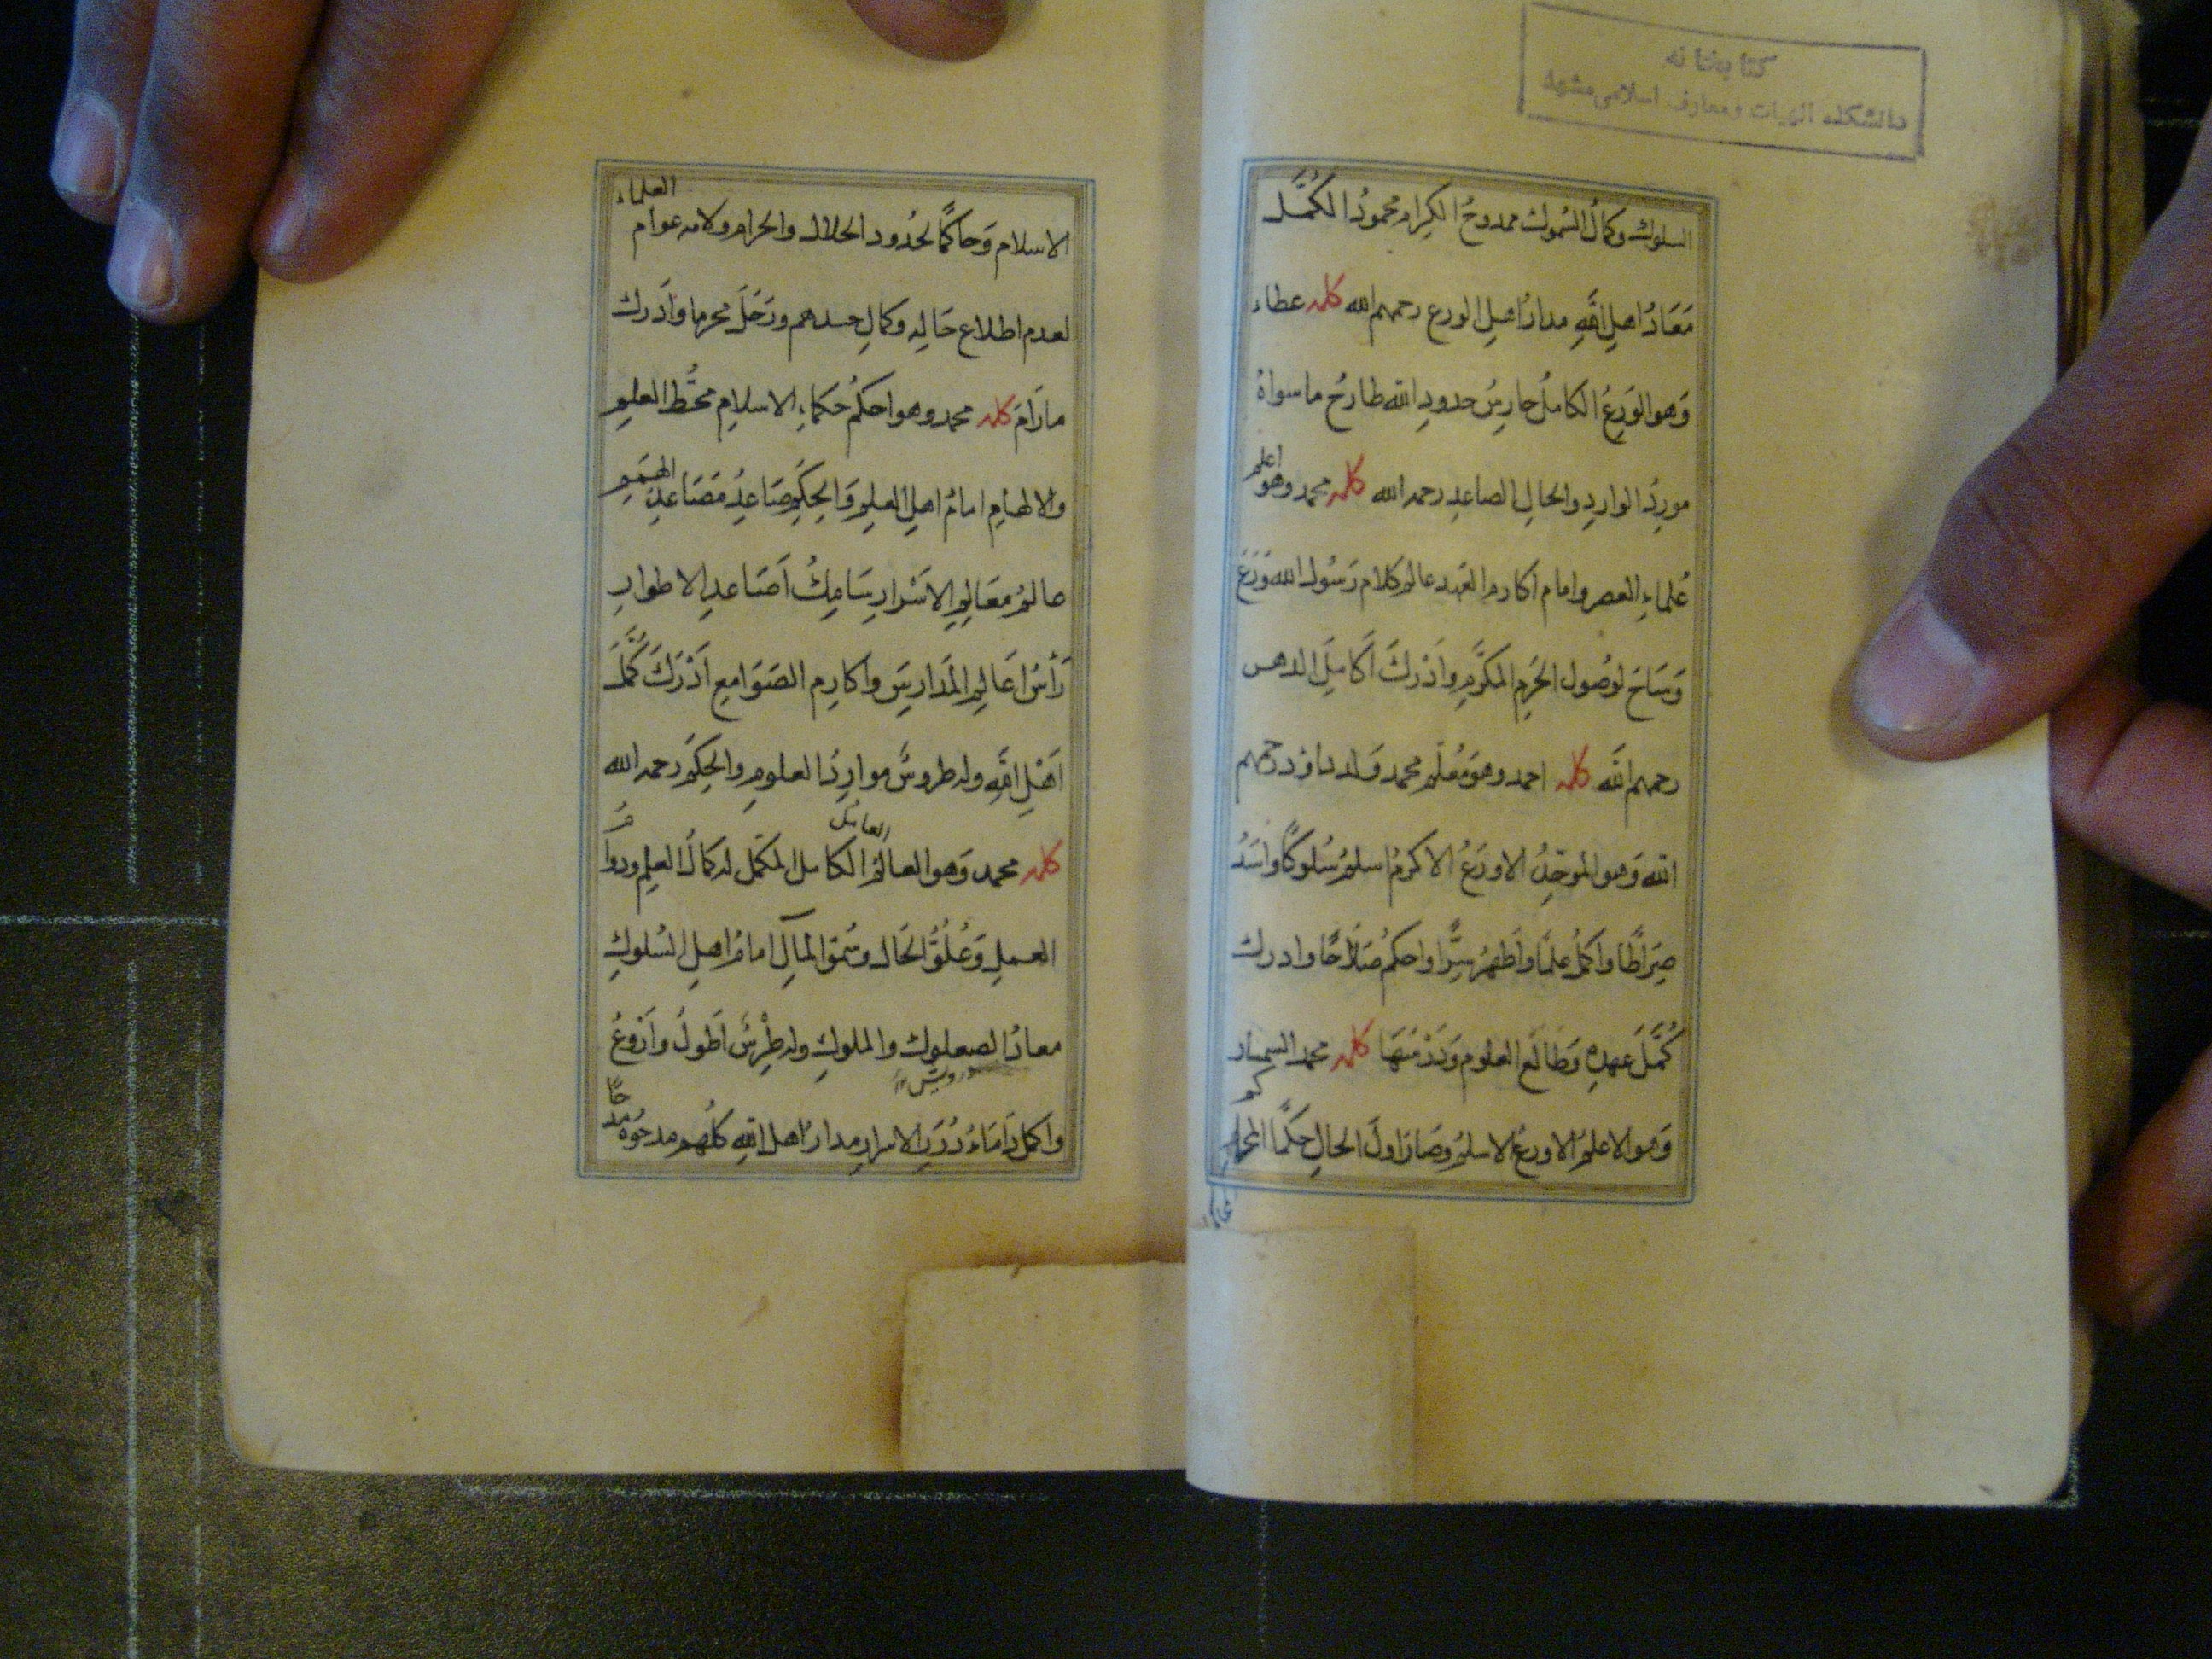 كتابخانه
دانشكده الهيات ومعارف اسلامى مشهد
السلوك وكمالُ السُموك ممدوحُ الكِرام محمودُ الكُمَّل
مَعَادُ اهلِ اللهِ مدارُ اهلِ الورع رحمهم الله كلمه عطاء
وَهوالوَرِعُ الكاملُ حارِسُ حدودِ الله طارحُ ماسواهُ
مورِدُ الواردِ والحالِ الصاعدِ رحمه الله كلمه محمد وهو اعلم
عُلماءِ العصر وامام اكارم العهد عالم كلام رَسُول الله وَرَعَ
وَسَاحَ لوُصُول الحَرَمِ المكرَّمِ وَاَدْرَكَ اَكَامِلَ الدهر
رحمهم الله كلمه احمد وهو مُعَلّم محمد وَلد داؤد رحمهم
الله وَهو الموحِّدُ الاورَعُ الاكرمُ اسلمُ سُلوكًا واسَدُّ
صِرَاطًا واكملُ علمًا واَطهرُ سِرًّا واحكمُ صَلَاحًا وادرك
كُمَّلَ عهدِهِ وَطَالَعَ العلوم وَدَرَسَهَا كلمه محمد السمسار
وَهو الاعلمُ الاورعُ الاسلمُ وصَارَ اولَ الحالِ حَكَمًا
الاسلام وَحاكمًا لحُدود الحلال والحرام ولامه عوام العلماء
لعدم اطلاع حَالِه وكمالِ حسدهم ورَحَلَ محرما واَدرك
مارَامَ كلمه محمد وهو احكمُ حكماءِ الاسلام محطُّ العلمِ
والالهامِ امامُ اهلِ العلمِ وَالحِكَمِ صَاعِدُ مَصَاعدِ الهِمَمِ
عالمُ معَالِمِ الاَسْرارِ سَامِكُ اَصَاعدِ الاطوارِ
رَأسُ اَعَالِمِ المَدَارِسِ واكارِمِ الصَوَامعِ اَدْرَكَ كُمَّلَ
اَهْلِ اللهِ وله طروسٌ موارِدُ العلومِ والحِكَمِ رحمه الله
كلمه محمد وَهو العالمُ العامل الكامل المكمّل له كمالُ العلمِ ودوامُ
العملِ وَعُلُوُّ الحَال وسُموّ المآلِ امامُ اهلِ السُلوكِ
معادُ الصعلوك والملوكِ وله طِرْسٌ اَطولُ واَرْوعُ
واكمل دَامَاءُ دُرَرِ الاسرارِ مدارُ اهل اللهِ كلُهم مدحوُه مدحًا